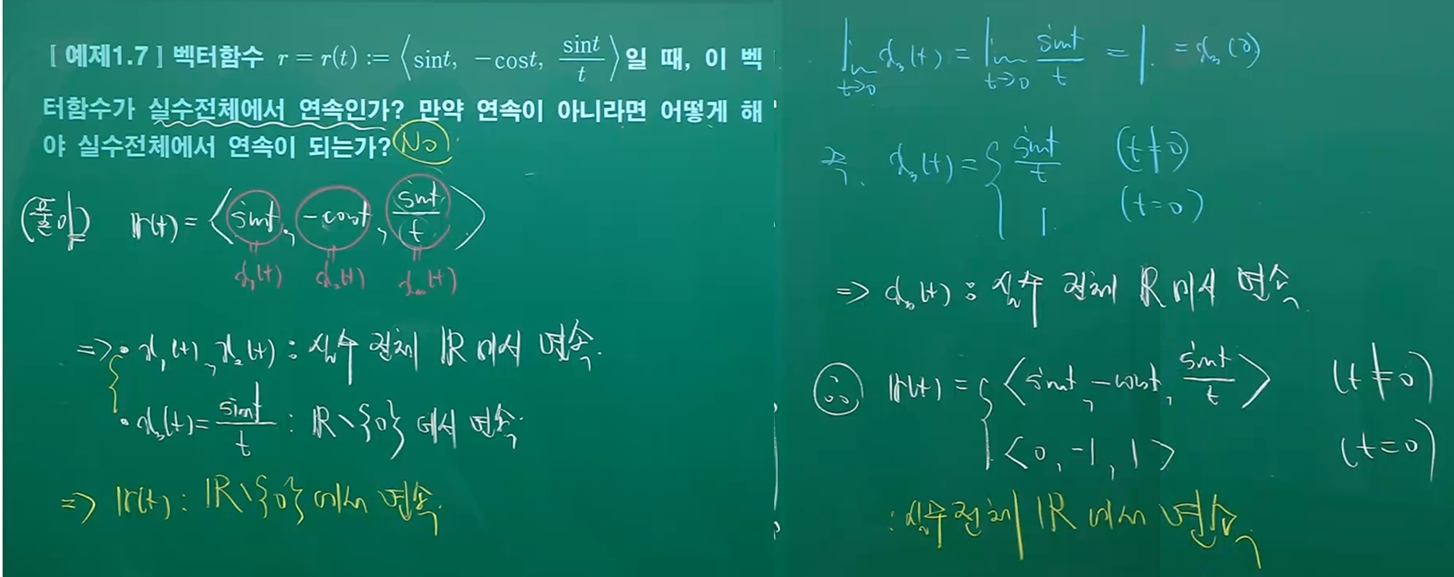 [ 예제1.7 ] 벡터함수 r = r(t) := ⟨sint, -cost, sint/t⟩일 때, 이 벡
터함수가 실수전체에서 연속인가? 만약 연속이 아니라면 어떻게 해
야 실수전체에서 연속이 되는가? No
(풀이) r(t) = ⟨sint, -cost, sint/t⟩
x₁(t) x₂(t) x₃(t)
=> • x₁(t), x₂(t) : 실수 전체 ℝ에서 연속.
• x₃(t) = sint/t : ℝ\{0}에서 연속.
=> r(t) : ℝ\{0}에서 연속.
lim t→0 x₃(t) = lim t→0 sint/t = 1. = x₃(0)
즉. x₃(t) = { sint/t (t≠0)
1. (t=0)
=> x₃(t) : 실수 전체 ℝ에서 연속.
∴ r(t) = { ⟨sint, -cost, sint/t⟩ (t≠0)
⟨0, -1, 1⟩ (t=0)
: 실수전체 ℝ에서 연속.